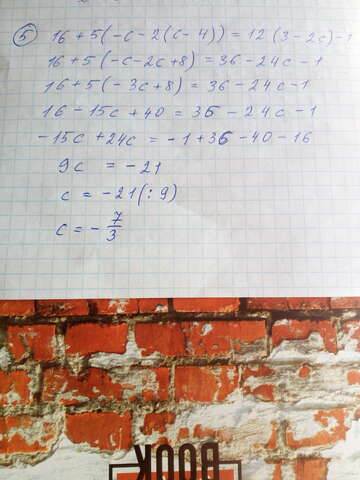 5 16 + 5(-c - 2(c - 4)) = 12(3 - 2c) - 1
16 + 5(-c - 2c + 8) = 36 - 24c - 1
16 + 5(-3c + 8) = 36 - 24c - 1
16 - 15c + 40 = 36 - 24c - 1
-15c + 24c = -1 + 36 - 40 - 16
9c = -21
c = -21(:9)
c = -7/3
BOOK